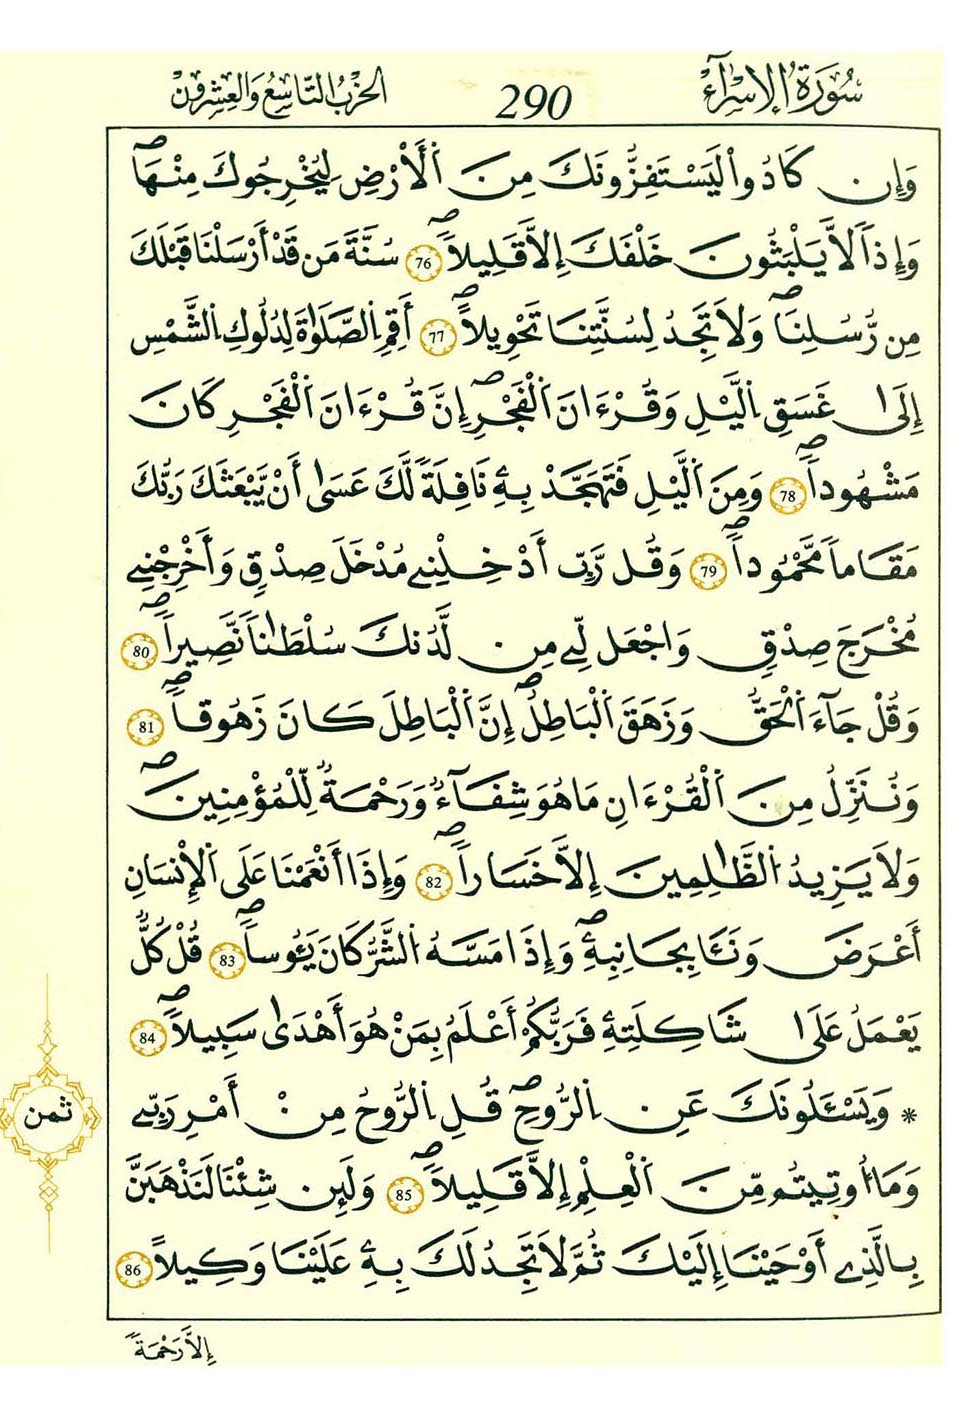 سُورَةُ الْإِسْرَآءِ 290 الحِزْبُ التَّاسِعُ وَالعِشْرُونَ
وَإِن كَادُواْ لَيَسْتَفِزُّونَكَ مِنَ اَلَارْضِ لِيُخْرِجُوكَ مِنْهَاۖ
وَإِذاٗ لاَّ يَلْبَثُونَ خَلْفَكَ إِلاَّ قَلِيلاٗۖ 76 سُنَّةَ مَن قَدَ اَرْسَلْنَا قَبْلَكَ
مِن رُّسُلِنَاۖ وَلاَ تَجِدُ لِسُنَّتِنَا تَحْوِيلاًۖ 77 أَقِمِ اِلصَّلَوٰةَ لِدُلُوكِ اِلشَّمْسِ
إِلَىٰ غَسَقِ اِلَّيْلِ وَقُرْءَانَ اَلْفَجْرِۖ إِنَّ قُرْءَانَ اَلْفَجْرِ كَانَ
مَشْهُوداٗۖ 78 وَمِنَ اَلَّيْلِ فَتَهَجَّدْ بِهِۦ نَافِلَةٗ لَّكَ عَسَىٰ أَنْ يَّبْعَثَكَ رَبُّكَ
مَقَاماٗ مَّحْمُوداٗۖ 79 وَقُل رَّبِّ أَدْخِلْنِے مُدْخَلَ صِدْقٖ وَأَخْرِجْنِے
مُخْرَجَ صِدْقٖ وَاجْعَل لِّے مِن لَّدُنكَ سُلْطَٰناٗ نَّصِيراٗۖ 80
وَقُلْ جَآءَ اَلْحَقُّ وَزَهَقَ اَلْبَاطِلُۖ إِنَّ اَلْبَاطِلَ كَانَ زَهُوقاٗۖ 81
وَنُنَزِّلُ مِنَ اَلْقُرْءَانِ مَا هُوَ شِفَآءٞ وَرَحْمَةٞ لِّلْمُؤْمِنِينَۖ
وَلاَ يَزِيدُ اُلظَّٰلِمِينَ إِلاَّ خَسَاراٗۖ 82 وَإِذَا أَنْعَمْنَا عَلَى اَلِانْسَٰنِ
أَعْرَضَ وَنَـَٔا بِجَانِبِهِۦۖ وَإِذَا مَسَّهُ اُلشَّرُّ كَانَ يَـُٔوساٗۖ 83 قُلْ كُلّٞ
يَعْمَلُ عَلَىٰ شَاكِلَتِهِۦ فَرَبُّكُمُ أَعْلَمُ بِمَنْ هُوَ أَهْدَىٰ سَبِيلاٗۖ 84
* وَيَسْـَٔلُونَكَ عَنِ اِلرُّوحِۖ قُلِ اِلرُّوحُ مِنْ أَمْرِ رَبِّے
ثمن
وَمَا أُوتِيتُم مِّنَ اَلْعِلْمِ إِلاَّ قَلِيلاٗۖ 85 وَلَئِن شِئْنَا لَنَذْهَبَنَّ
بِالَّذِے أَوْحَيْنَا إِلَيْكَ ثُمَّ لاَ تَجِدُ لَكَ بِهِۦ عَلَيْنَا وَكِيلاً 86
إِلاَّ رَحْمَةٗ